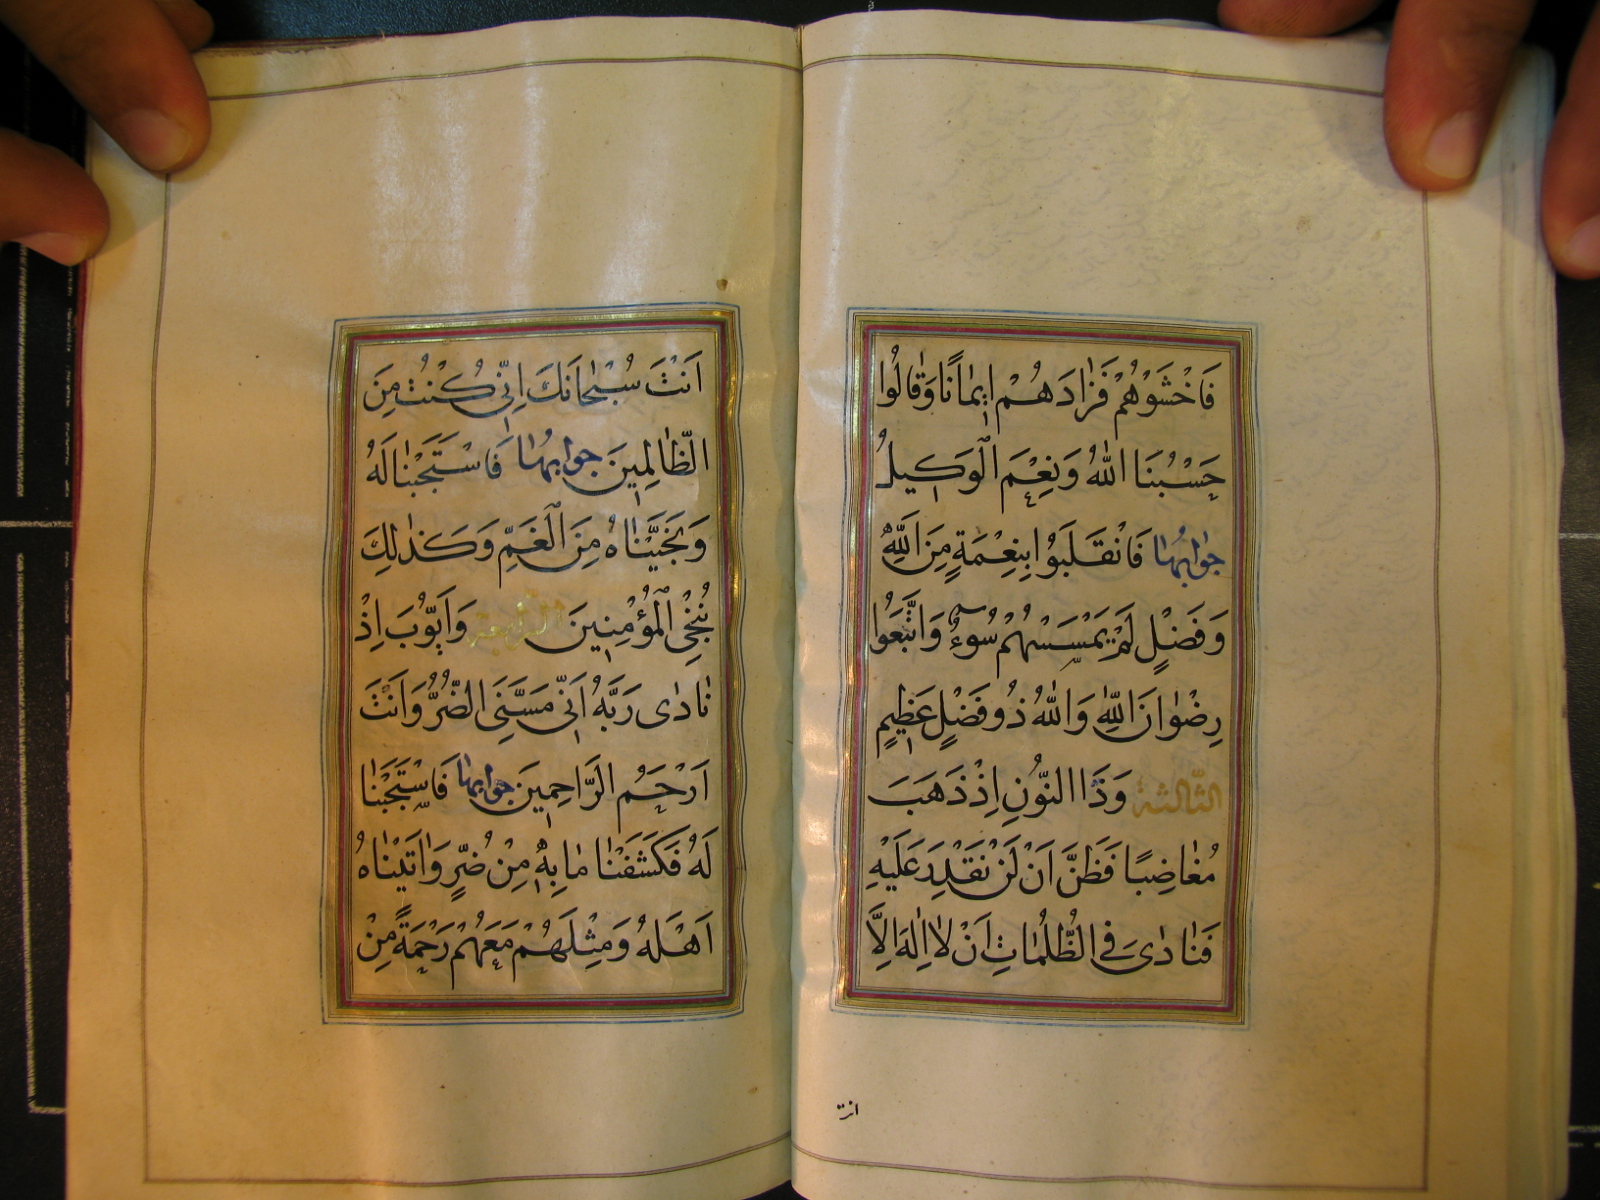 فَاخْشَوْهُمْ فَزٰادَهُمْ اِیمٰانًا وَقٰالُوا
حَسْبُنَا اللّٰهُ وَنِعْمَ الْوَكِیلُ
جوابها فَانْقَلَبُوا بِنِعْمَةٍ مِنَ اللّٰهِ
وَفَضْلٍ لَمْ یَمْسَسْهُمْ سُوۤءٌ وَاتَّبَعُوا
رِضْوٰانَ اللّٰهِ وَاللّٰهُ ذُو فَضْلٍ عَظِیمٍ
الثّالثة وَذَا النُّونِ اِذْ ذَهَبَ
مُغٰاضِبًا فَظَنَّ اَنْ لَنْ نَقْدِرَ عَلَیْهِ
فَنٰادٰی فِی الظُّلُمٰاتِ اَنْ لٰا اِلٰهَ اِلَّا
انت
اَنْتَ سُبْحٰانَكَ اِنِّی كُنْتُ مِنَ
الظّٰالِمِینَ جوابها فَاسْتَجَبْنٰا لَهُ
وَنَجَّیْنٰاهُ مِنَ الْغَمِّ وَكَذٰلِكَ
نُنْجِی الْمُؤْمِنِینَ الرّابعة وَاَیُّوبَ اِذْ
نٰادٰی رَبَّهُ اَنِّی مَسَّنِیَ الضُّرُّ وَاَنْتَ
اَرْحَمُ الرَّاحِمِینَ جوابها فَاسْتَجَبْنٰا
لَهُ فَكَشَفْنٰا مٰا بِهِ مِنْ ضُرٍّ وَاٰتَیْنٰاهُ
اَهْلَهُ وَمِثْلَهُمْ مَعَهُمْ رَحْمَةً مِنْ